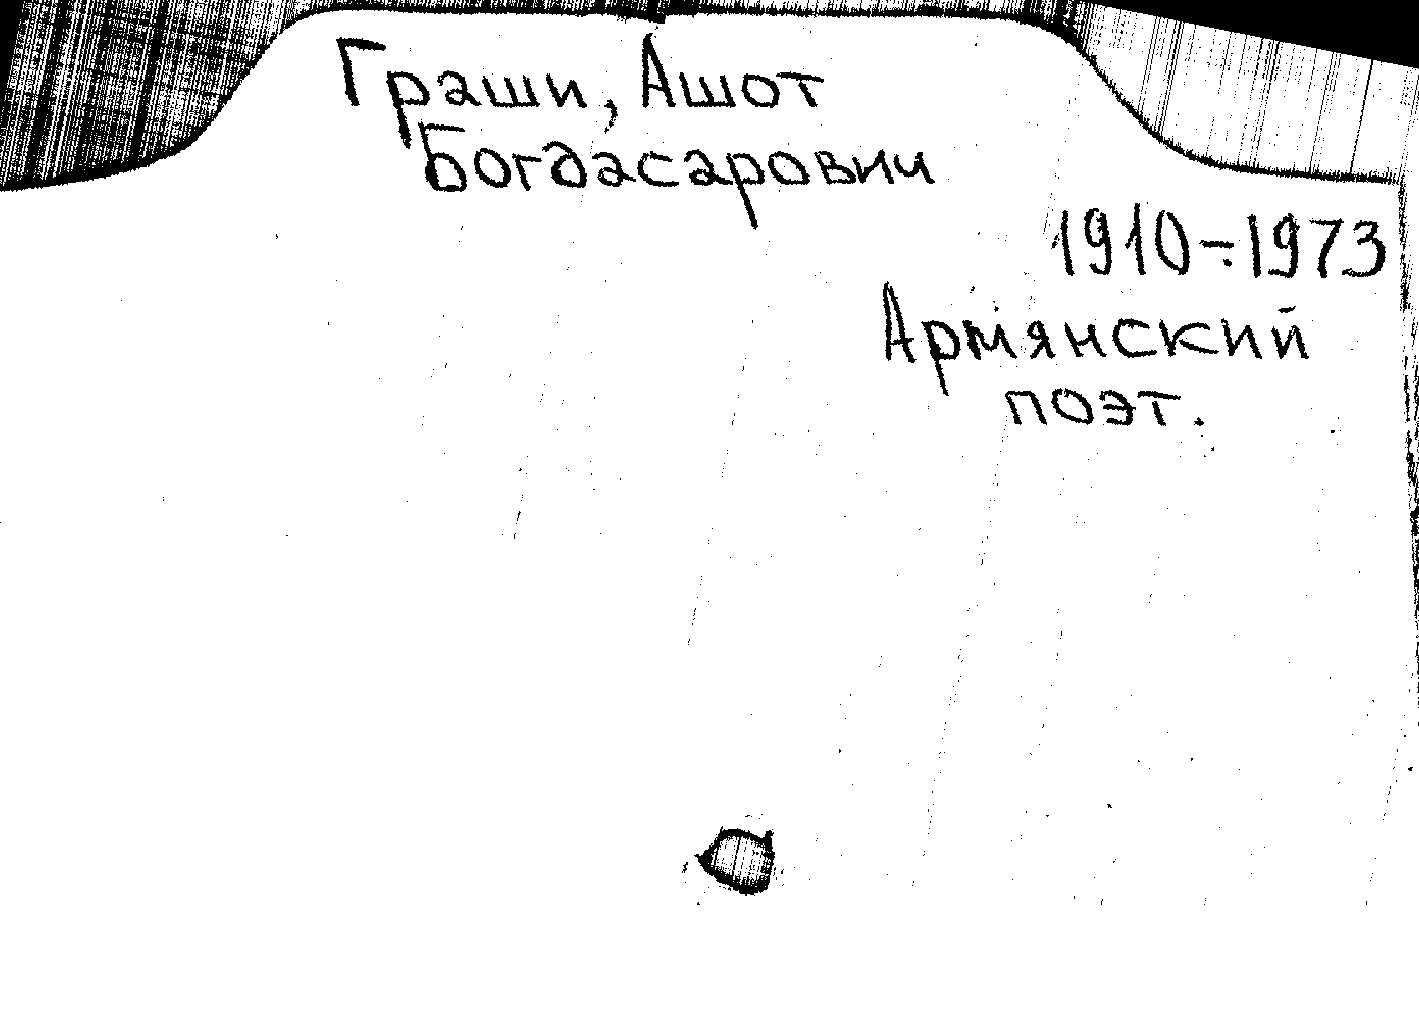 Граши, Ашот
Богдасарович
1910-1973
Армянский
поэт.